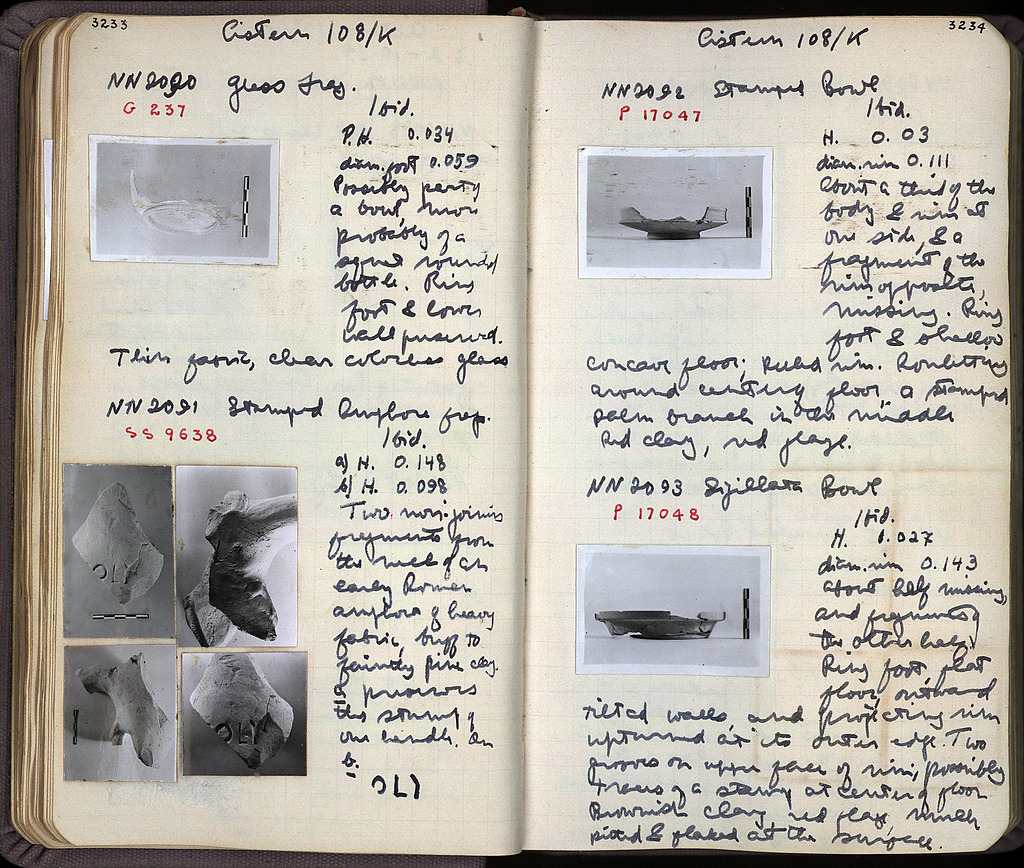 3233
Cistern 108/K
NN 2090 Glass frag.
G 237
Ibid.
P.H. 0.034
diam. foot 0.059
Possibly part of
a bowl, more
probably of a
squat rounded
bottle. Ring
foot & lower
wall preserved.
Thin fabric, clear colorless glass
NN 2091 Stamped Amphora frag.
SS 9638
Ibid.
a) H. 0.148
b) H. 0.098
Two non-joining
fragments from
the neck of an
early Roman
amphora of heavy
fabric, buff to
faintly pink clay.
a preserves
the stump of
one handle. On
b.
OLI
3234
Cistern 108/K
NN 2092 Stamped Bowl
P 17047
Ibid.
H. 0.03
diam. rim 0.111
About a third of the
body & rim at
one side, & a
fragment of the
rim opposite,
missing. Ring
foot & shallow
concave floor; rolled rim. Rouletting
around centering floor, a stamped
palm branch in the middle
Red clay, red glaze.
NN 2093 Sigillata Bowl
P 17048
Ibid.
H. 0.027
diam. rim 0.143
About half missing,
and fragments of
the other half.
Ring foot, flat
floor, outward
tilted walls, and projecting rim
upturned at its outer edge. Two
grooves on upper face of rim; possibly
traces of a stamp at center of floor
Brownish clay, red glaze, much
pitted & flaked at the surface.